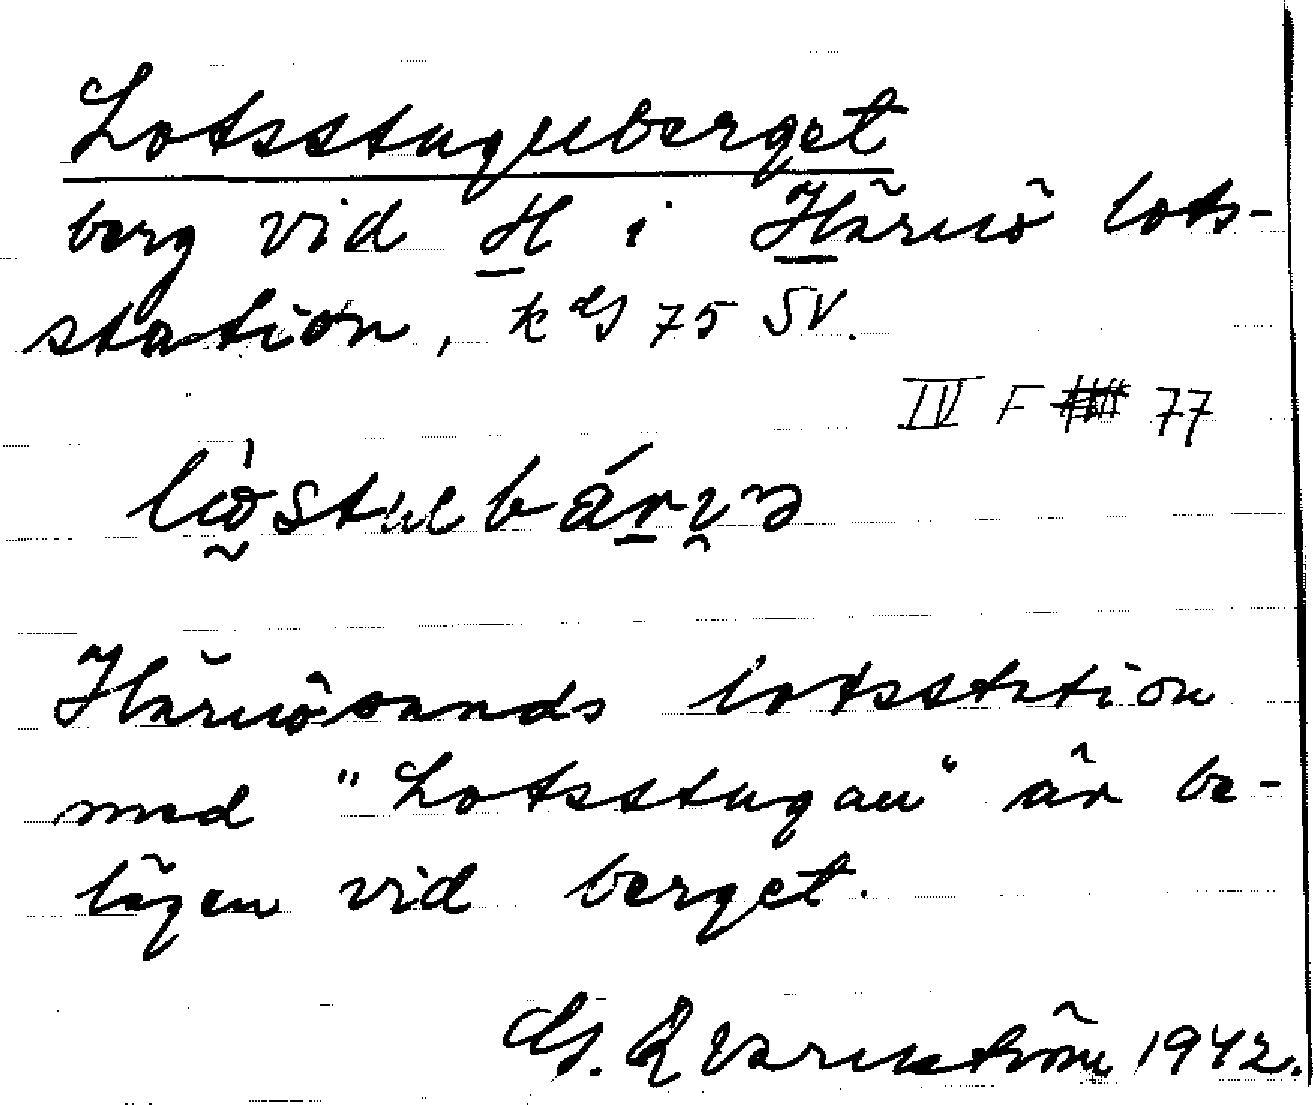 Lotsstuguberget
berg vid H i Härnö lots-
station, k G 75 SV.
IV F 77
Härnösands lotsstation
med "Lotsstugan" är be-
lägen vid berget.
G. Qvarnström 1942.